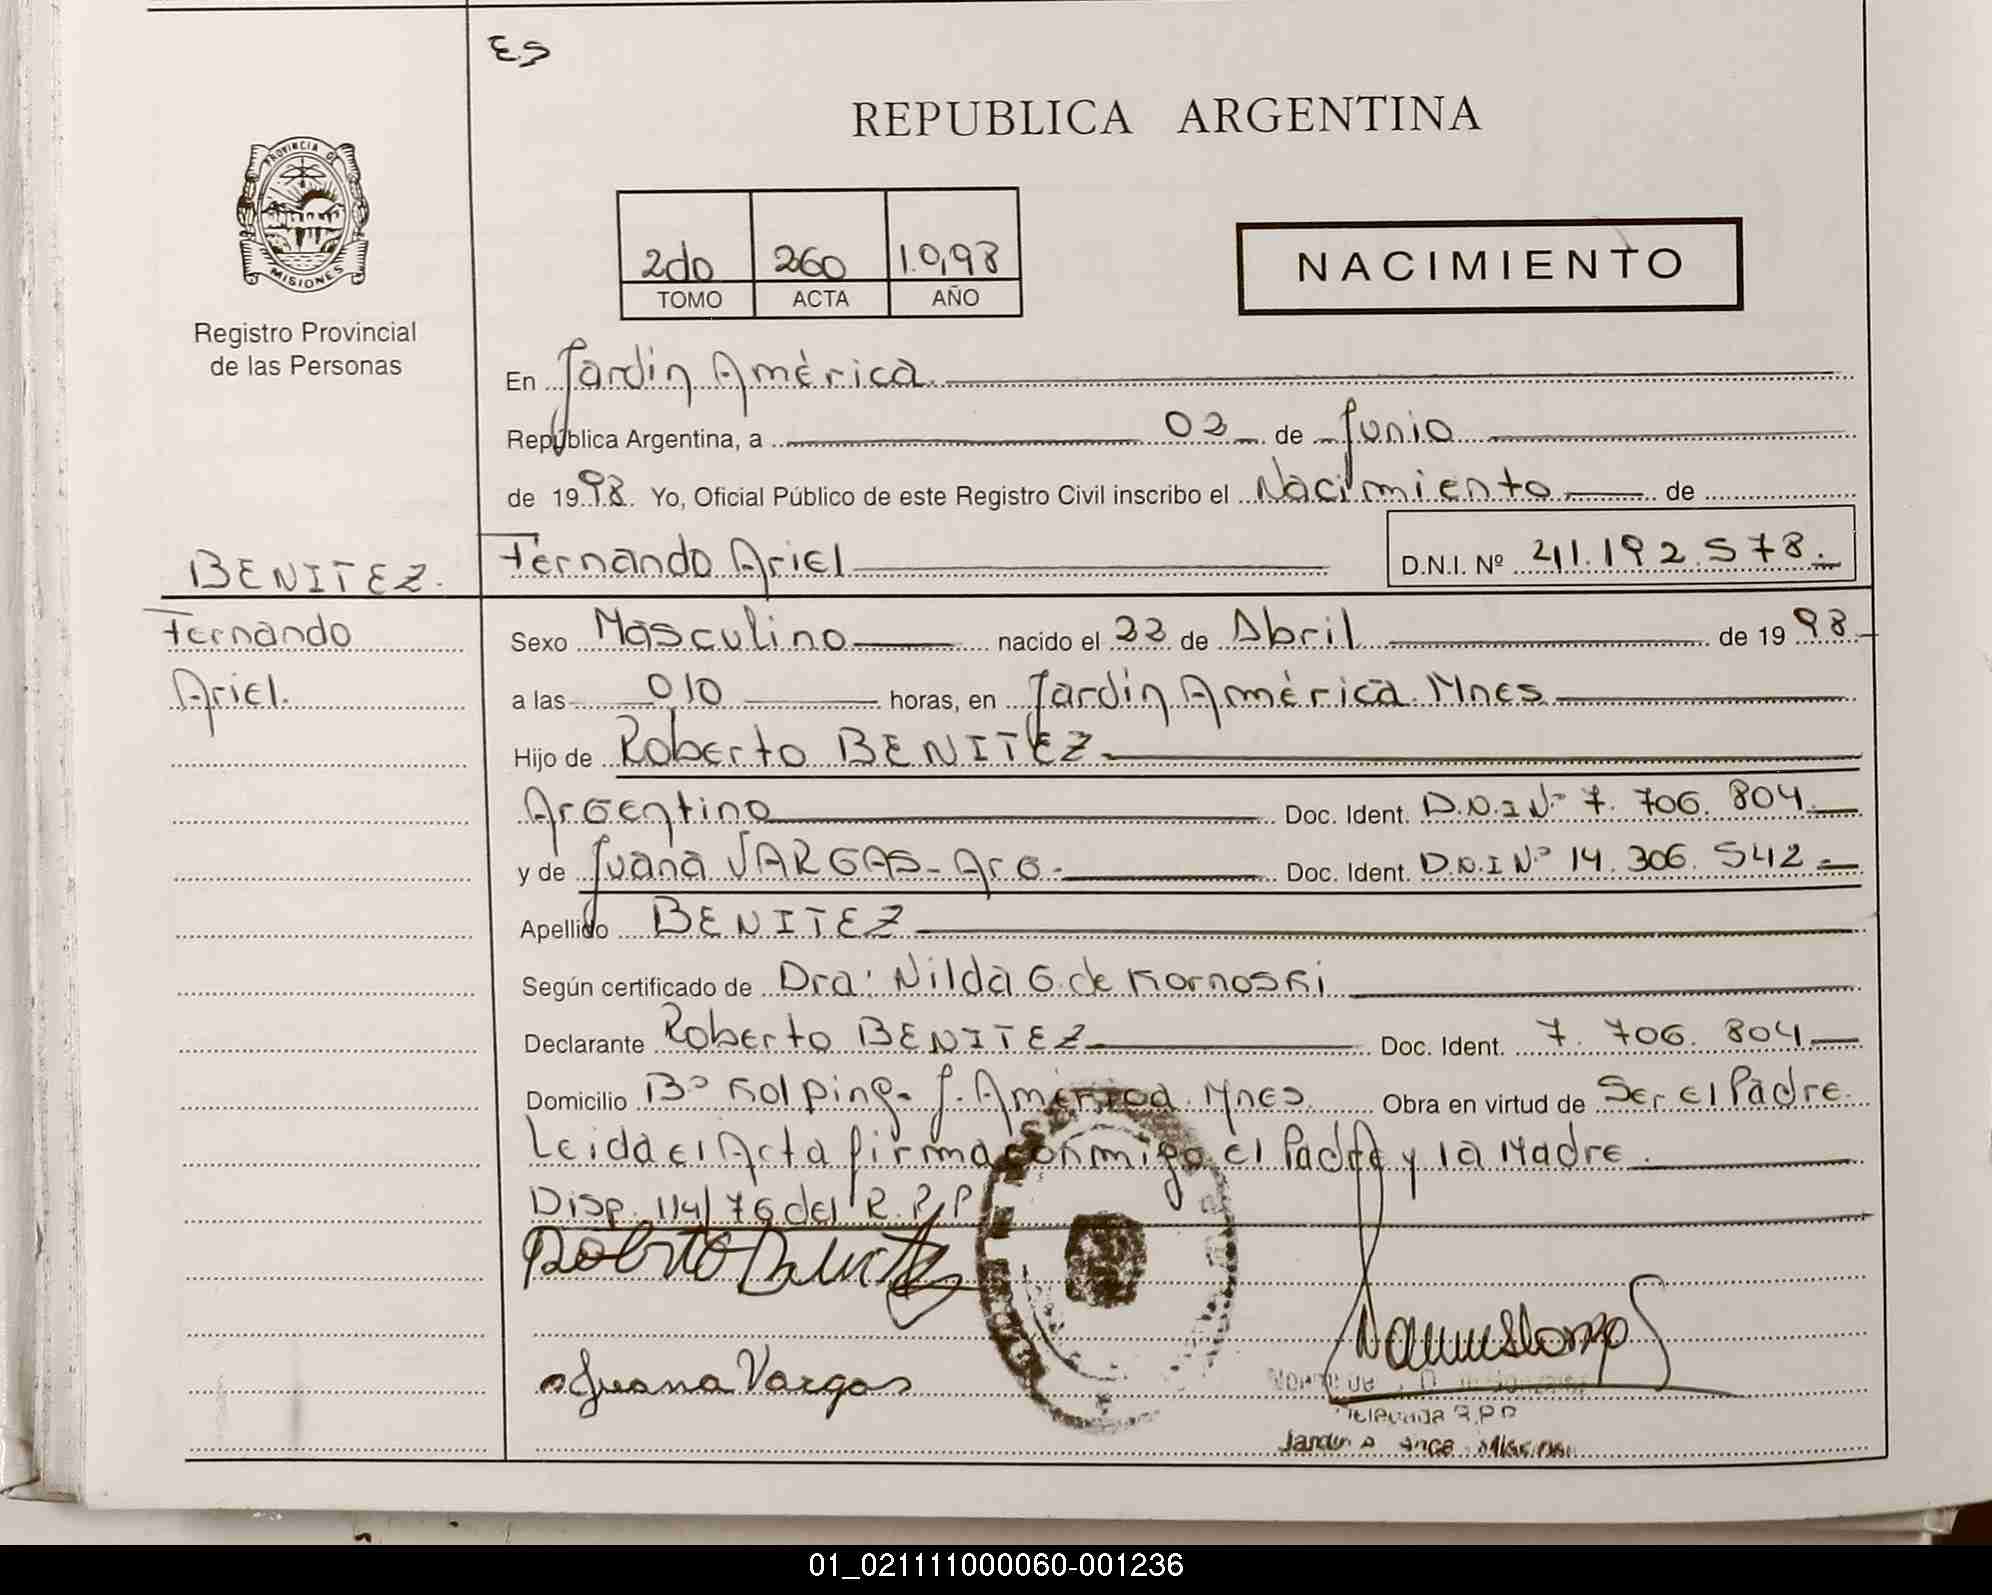 ES
REPUBLICA ARGENTINA
PROVINCIA DE
MISIONES
2do 260 1.9,98
TOMO ACTA AÑO
NACIMIENTO
Registro Provincial
de las Personas
En Jardín América.
República Argentina, a 02 de Junio
de 1998. Yo, Oficial Público de este Registro Civil inscribo el Nacimiento de
BENITEZ.
Fernando Ariel D.N.I. Nº 41.192.578.
Fernando
Sexo Masculino nacido el 22 de Abril de 1998
Ariel.
a las 010 horas, en Jardín América. Mnes
Hijo de Roberto BENITEZ
Argentino Doc. Ident. D.N.I Nº 7.706.804
y de Juana VARGAS - Arg. Doc. Ident. D.N.I Nº 14.306.542
Apellido BENITEZ
Según certificado de Dra. Nilda G. de Kornoski
Declarante Roberto BENITEZ Doc. Ident. 7.706.804
Domicilio Bº Kolping. J. América. Mnes Obra en virtud de Ser el Padre.
Leida el Acta firma conmigo el Padre y la Madre.
Disp. 114/76 del R.P.P
Roberto Benitez
Juana Vargas
01_021111000060-001236